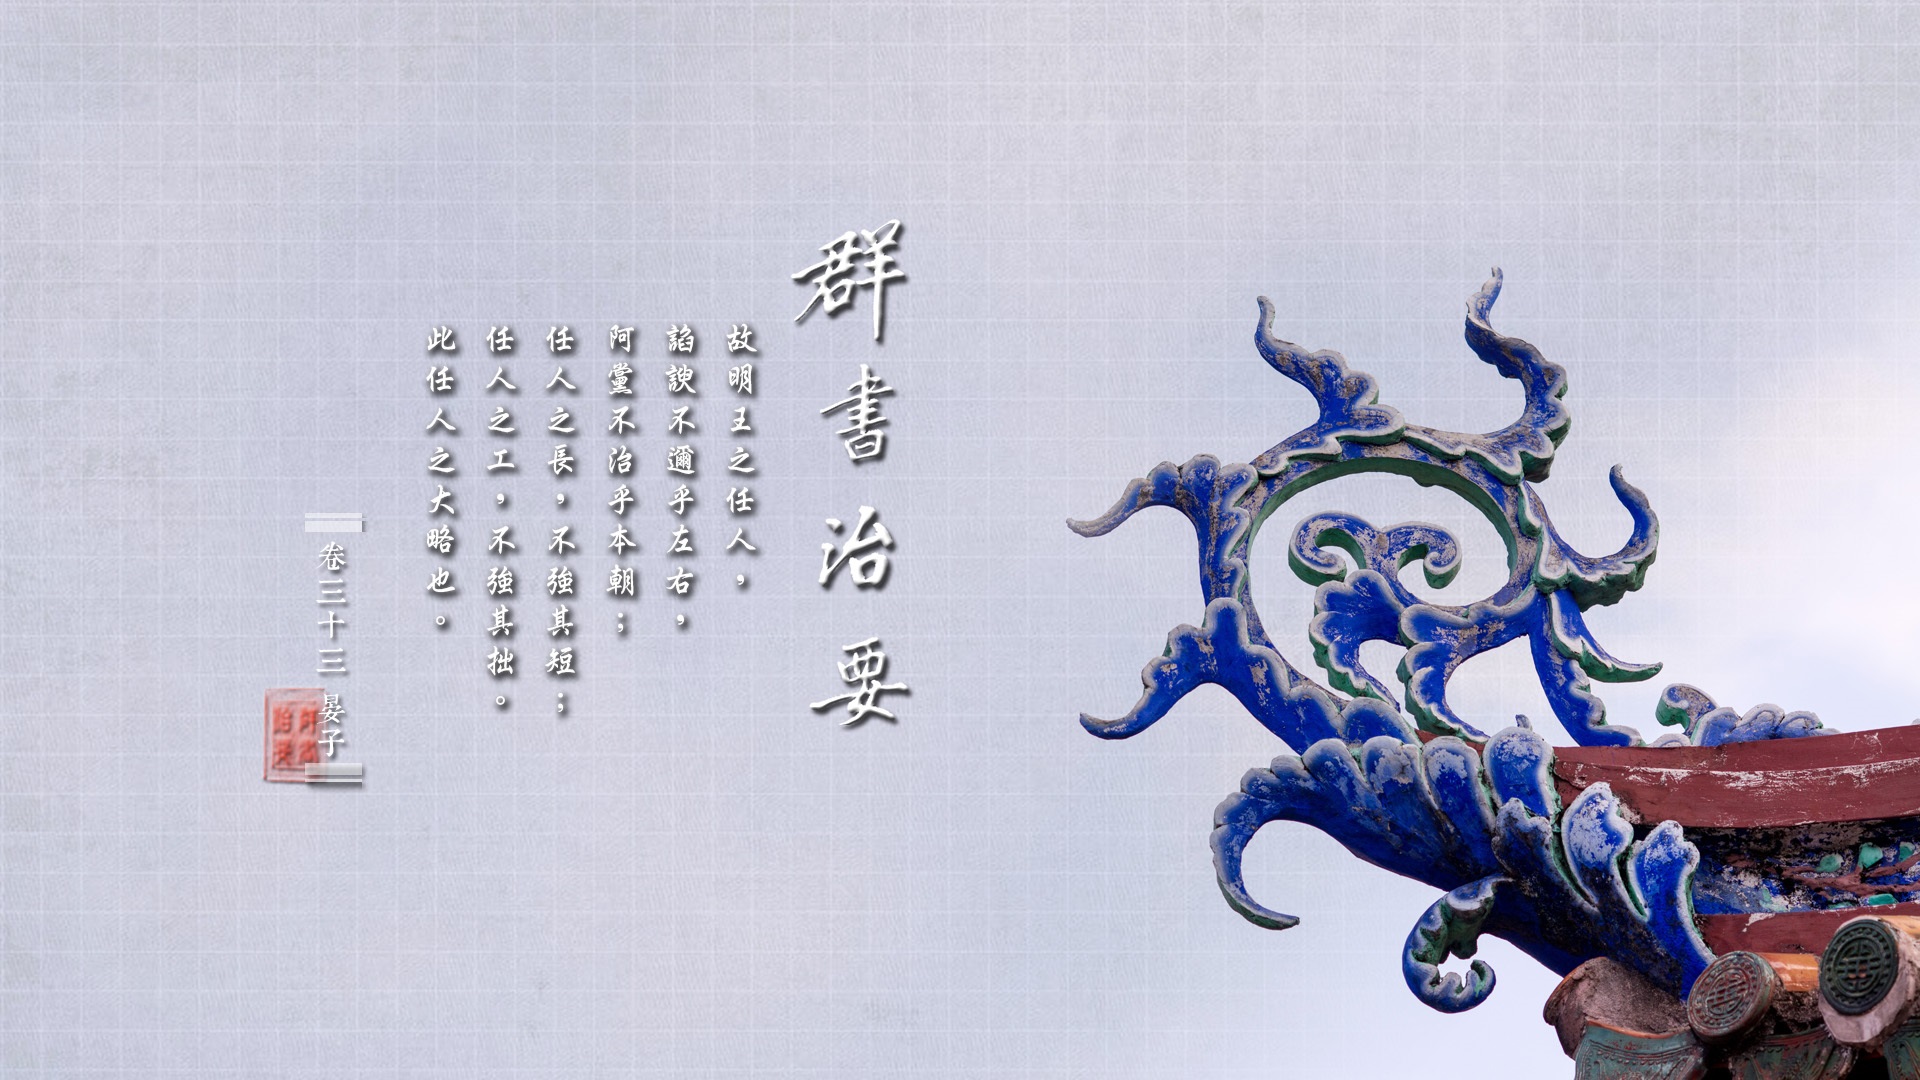 群書治要
故明王之任人，
諂諛不邇乎左右，
阿黨不治乎本朝；
任人之長，不強其短；
任人之工，不強其拙。
此任人之大略也。
卷三十三 晏子